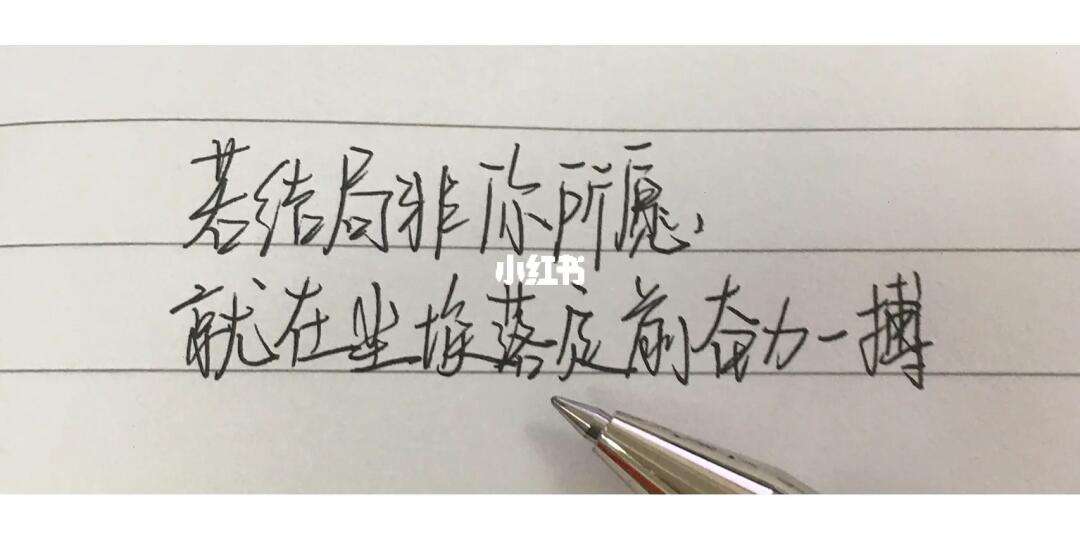 若结局非你所愿，
小红书
就在尘埃落定前奋力一搏